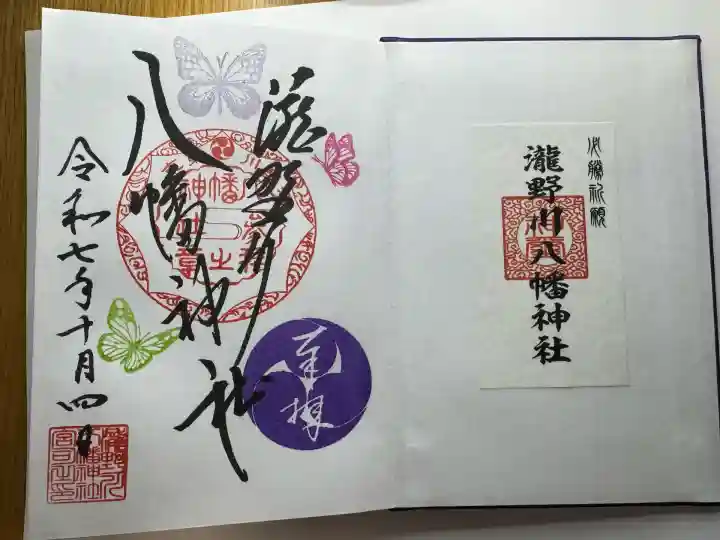 必勝祈願
瀧野川八幡神社
瀧野川
八幡神社
奉拝
令和七年十月四日